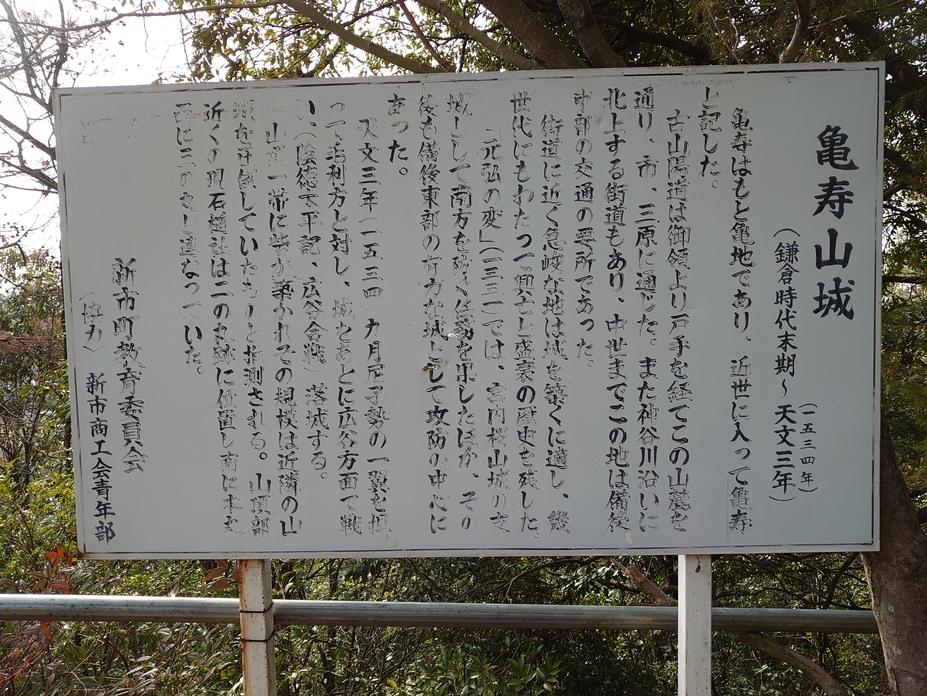 亀寿山城
(一五三四年)
(鎌倉時代末期～天文三年)
亀寿はもと亀地であり、近世に入って亀寿
と記した。
古山陽道は御領より戸手を経てこの山麓を
通り、市、三原に通じた。また神谷川沿いに
北上する街道もあり、中世までこの地は備後
中部の交通の要所であった。
街道に近く急峻な地は城を築くに適し、幾
世代にもわたって興亡と盛衰の歴史を残した。
「元弘の変」(一三三一)では、宮内桜山城の支
城として南方を防ぐ役割を果したほか、その
後も備後東部の有力な城として攻防の中心に
あった。
天文三年(一五三四 九月尼子勢の一翼を担
って毛利方と対し、城をあとに広谷方面で戦
い(陰徳太平記、広谷合戦)落城する。
山頂一帯に砦が築かれその規模は近隣の山
城を弁 していたものと推測される。山頂部
近くの現石槌社は二の丸跡に位置し南に本丸
西に三の丸と連なっていた。
新市町教育委員会
(協力) 新市商工会青年部